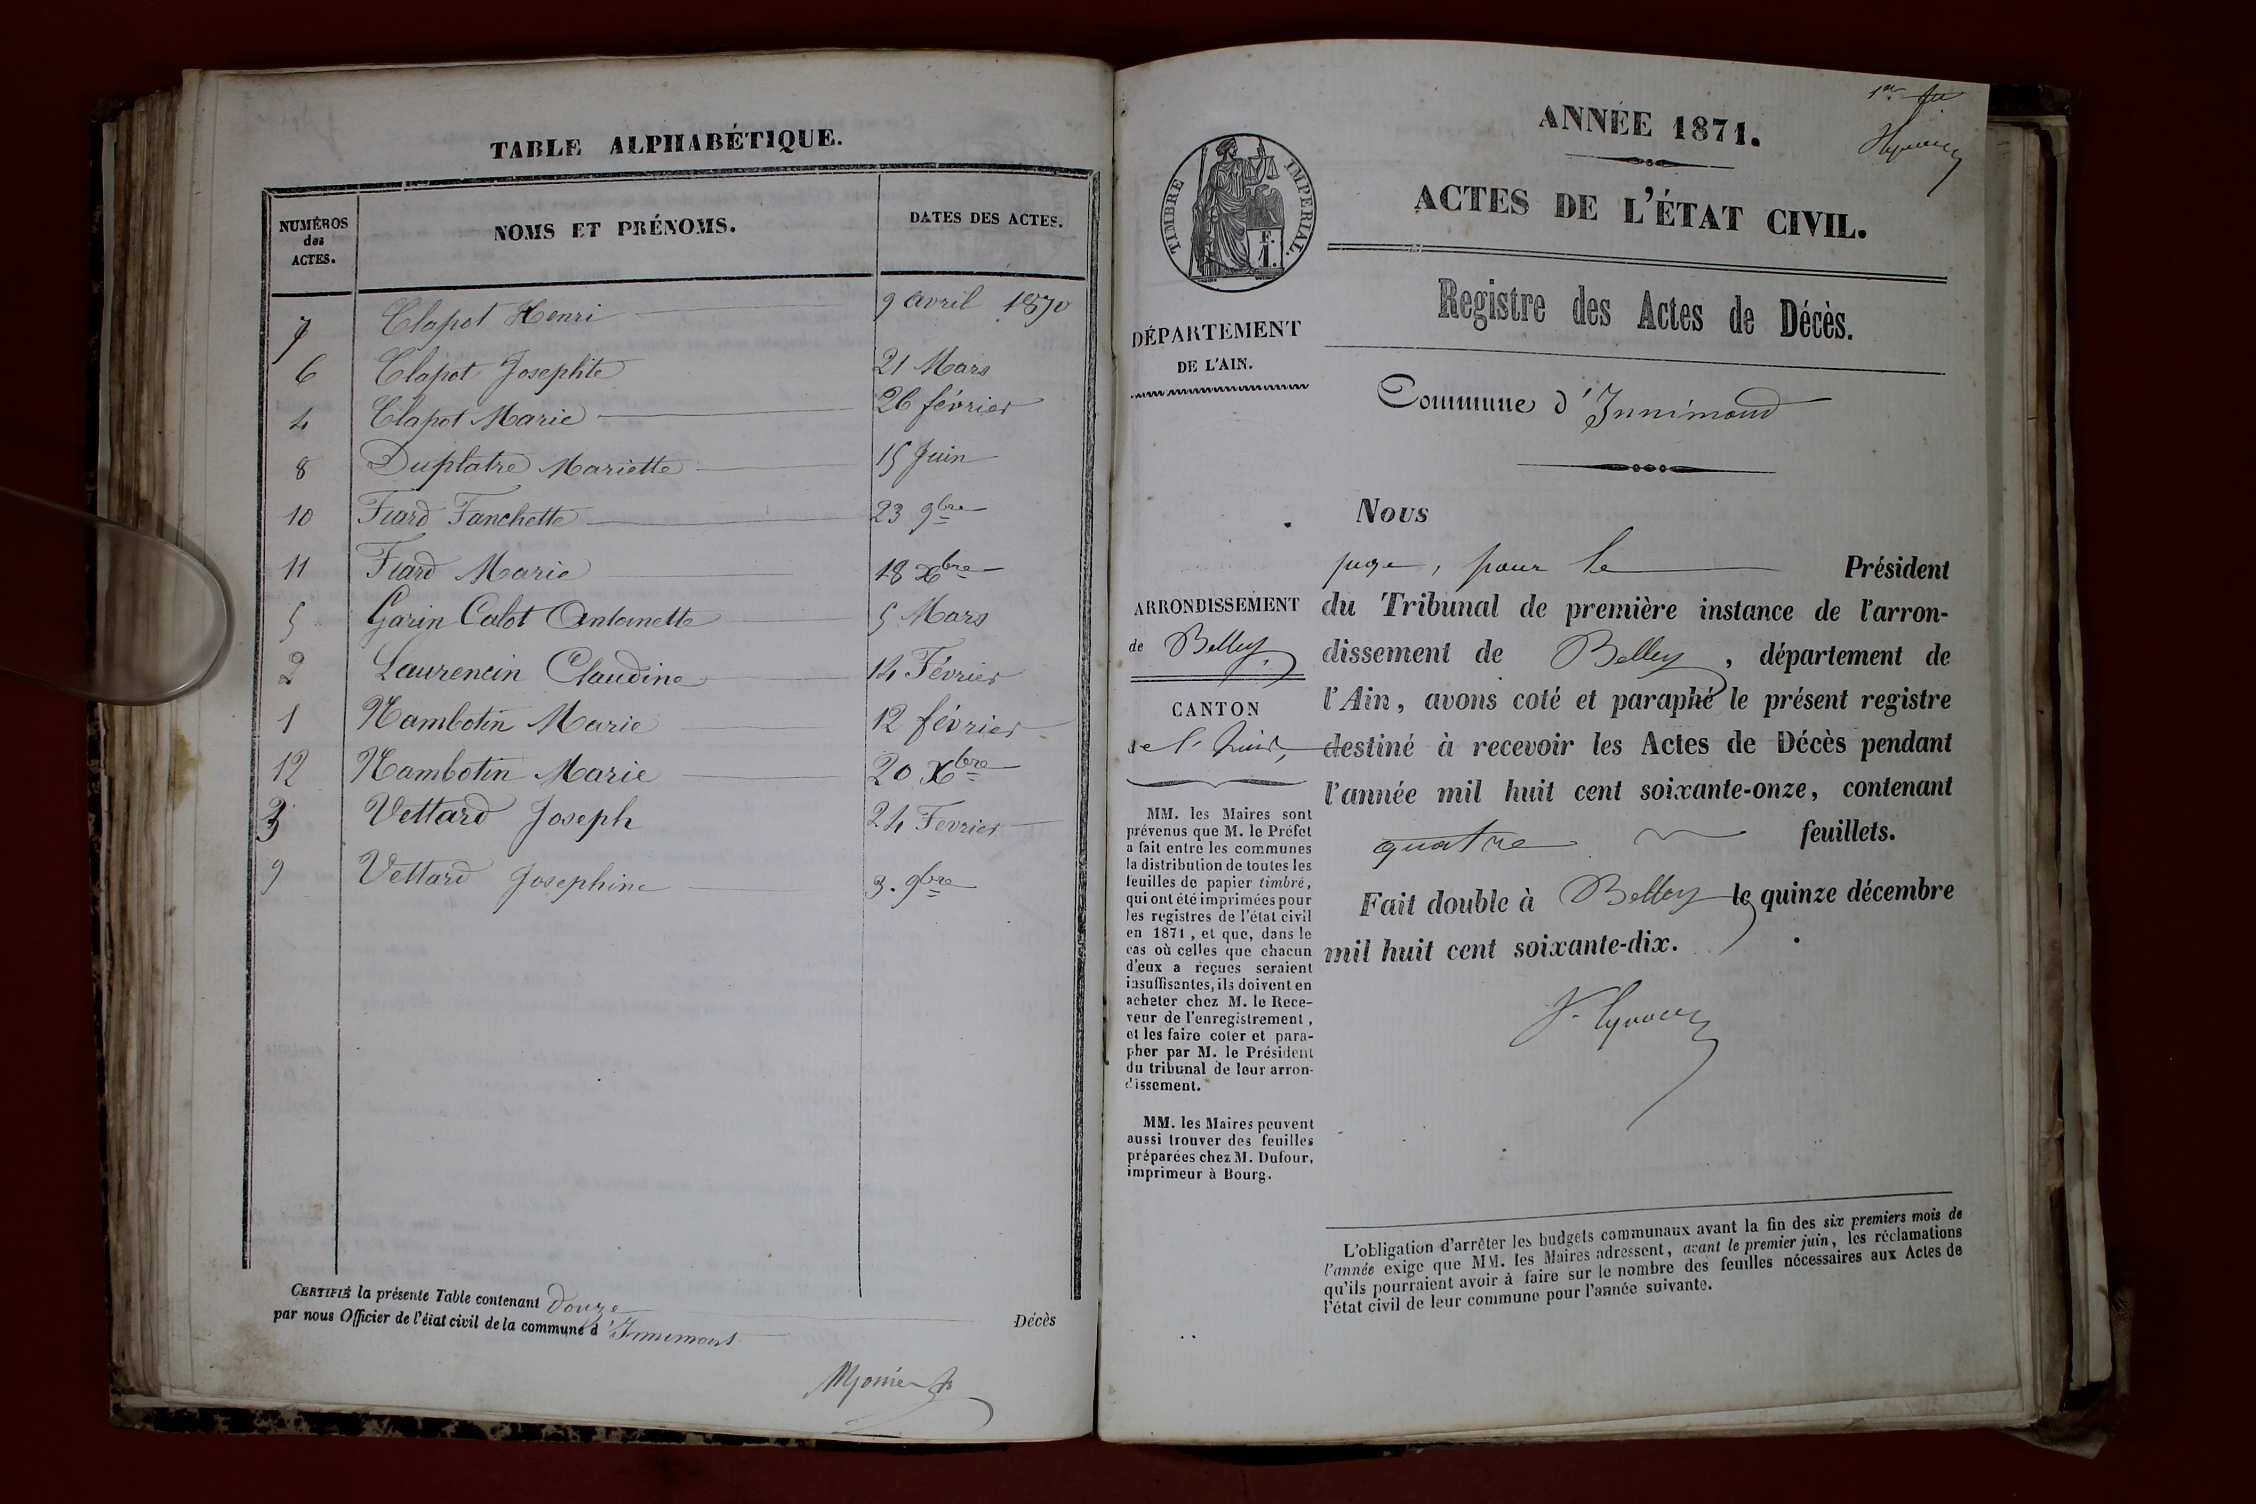 TABLE ALPHABÉTIQUE.
NUMÉROS des ACTES. NOMS ET PRÉNOMS. DATES DES ACTES.
7 Clapot Henri 9 avril 1870
6 Clapot Josephte 21 Mars
4 Clapot Marie 26 février
8 Duplatre Mariette 15 Juin
10 Fiard Fanchette 23 9bre
11 Fiard Marie 18 Xbre
5 Garin Calot Antoinette 5 Mars
2 Laurencin Claudine 14 Février
1 Nambotin Marie 12 février
12 Nambotin Marie 20 Xbre
3 Vettard Joseph 24 Fevrier
9 Vettard Josephine 3. 9bre
CERTIFIÉ la présente Table contenant Douze Décès
par nous Officier de l'état civil de la commune d'Innimont
1er
ANNÉE 1871.
ACTES DE L'ÉTAT CIVIL.
TIMBRE IMPERIAL.
F.
1.
Registre des Actes de Décès.
DÉPARTEMENT
DE L'AIN.
Commune d'Innimond
Nous
juge, pour le Président
du Tribunal de première instance de l'arron-
dissement de Belley, département de
l'Ain, avons coté et paraphé le présent registre
destiné à recevoir les Actes de Décès pendant
l'année mil huit cent soixante-onze, contenant
quatre feuillets.
Fait double à Belley le quinze décembre
mil huit cent soixante-dix.
ARRONDISSEMENT
de Belley.
CANTON
de
MM. les Maires sont
prévenus que M. le Préfet
a fait entre les communes
la distribution de toutes les
feuilles de papier timbré,
qui ont été imprimées pour
les registres de l'état civil
en 1871, et que, dans le
cas où celles que chacun
d'eux a reçues seraient
insuffisantes, ils doivent en
acheter chez M. le Rece-
veur de l'enregistrement,
et les faire coter et para-
pher par M. le Président
du tribunal de leur arron-
dissement.
MM. les Maires peuvent
aussi trouver des feuilles
préparées chez M. Dufour,
imprimeur à Bourg.
L'obligation d'arrêter les budgets communaux avant la fin des six premiers mois de
l'année exige que MM. les Maires adressent, avant le premier juin, les réclamations
qu'ils pourraient avoir à faire sur le nombre des feuilles nécessaires aux Actes de
l'état civil de leur commune pour l'année suivante.